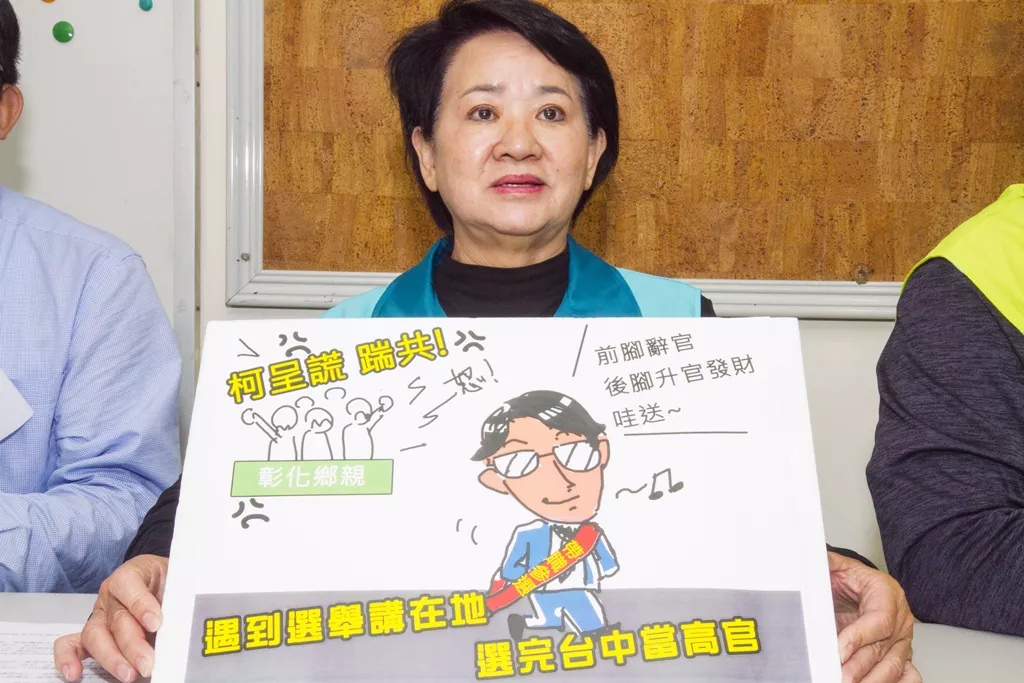 柯呈謊 踹共!
怒!
前腳辭官
後腳升官發財
哇送~
彰化鄉親
帶職參選
遇到選舉講在地
選完台中當高官